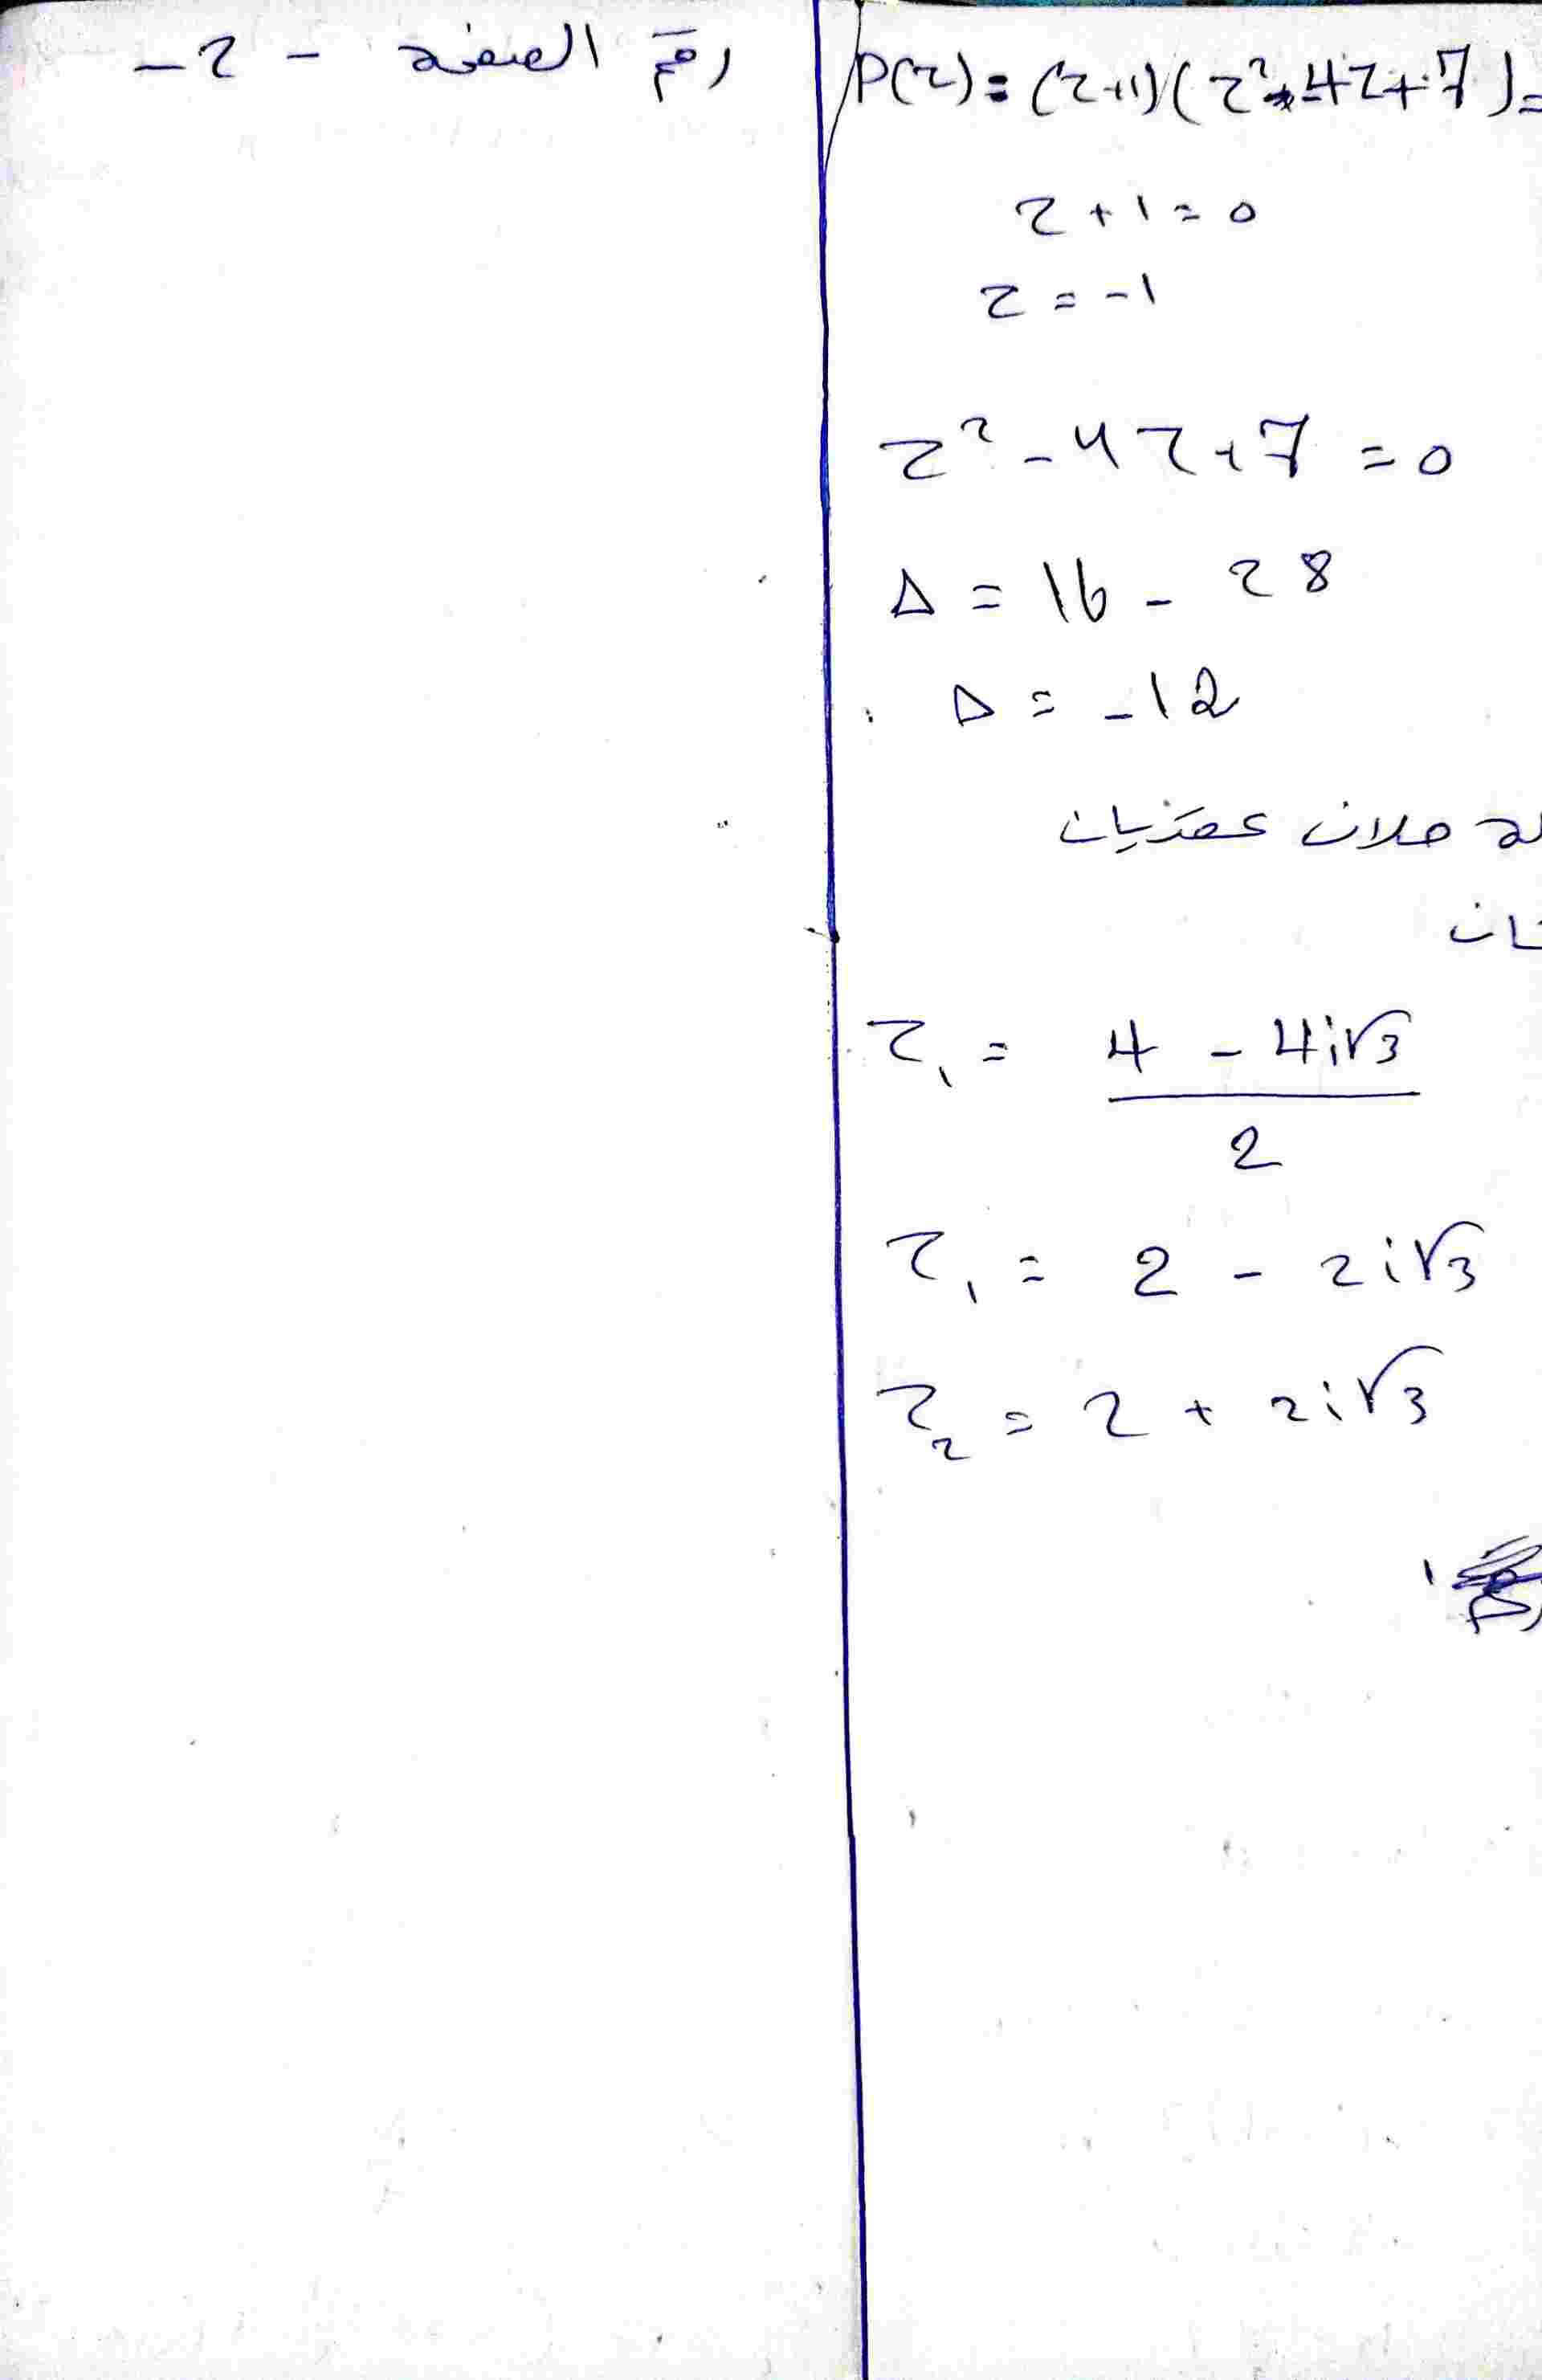 رقم الصفحة - 2 -
P(z) = (z+1)(z² - 4z + 7) =
z + 1 = 0
z = -1
z² - 4z + 7 = 0
Δ = 16 - 28
Δ = -12
حلان عقديان
ان
z₁ = (4 - 4i√3) / 2
z₁ = 2 - 2i√3
z₂ = 2 + 2i√3